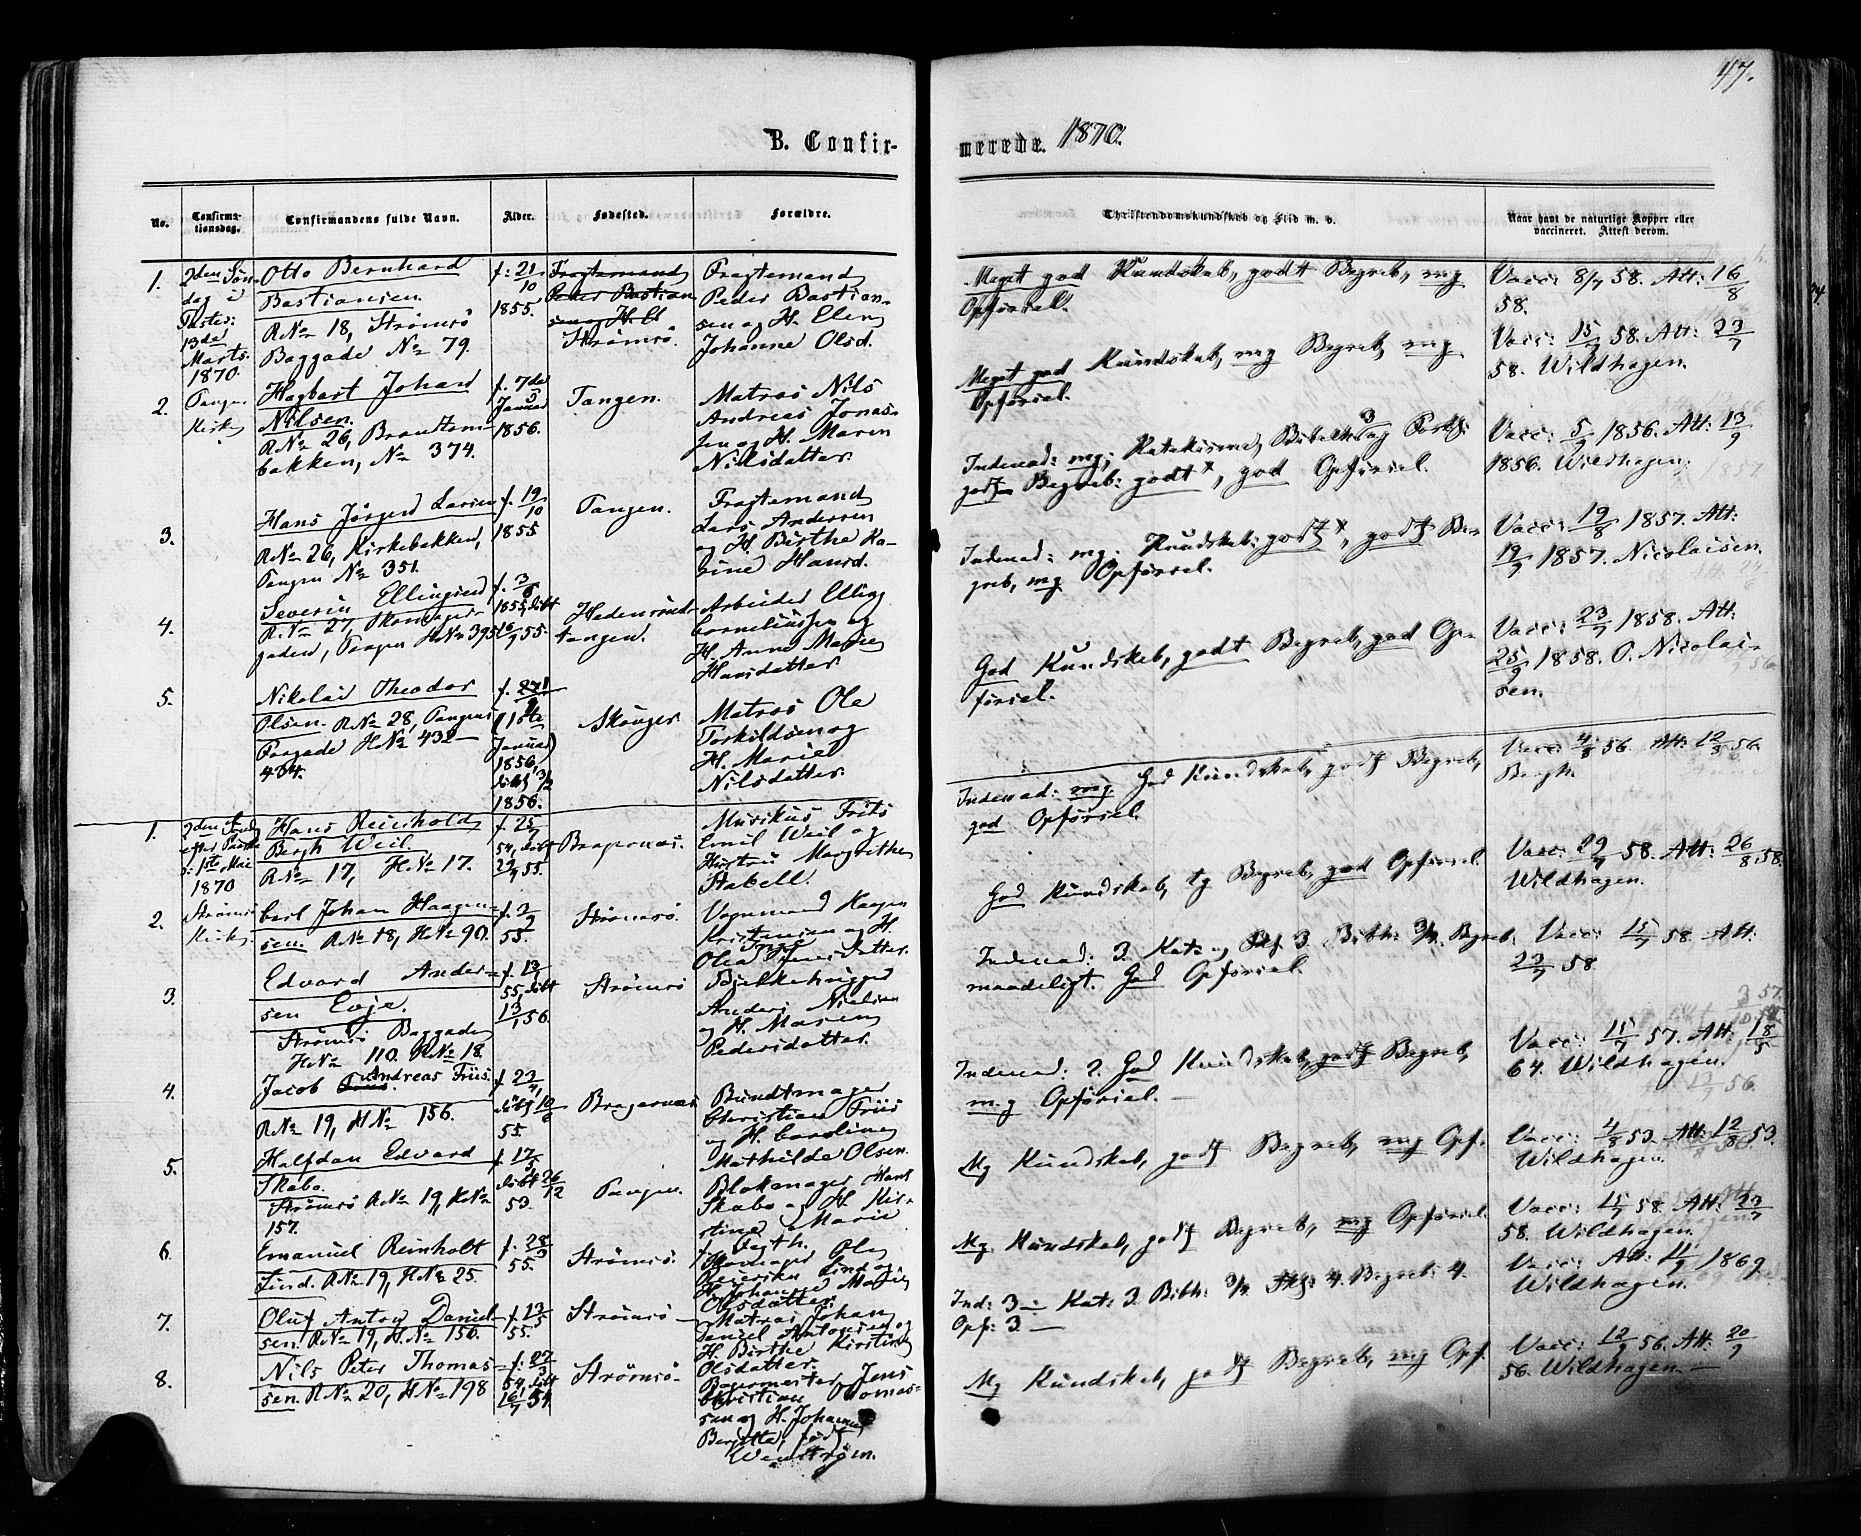 47.
B. Confirmerede. 1870.
No. Confirmationsdag. Confirmandens fulde Navn. Alder. Fødested. Forældre. Christendomskundskab og Flid m. v. Naar havt de naturlige Kopper eller vaccineret. Attest derom.
1. 2den Søn-
dag i
Faste:
13de
Marts
1870.
Tangen
Kirke
Otto Bernhard
Bastiansen.
RNo 18, Strømsø
Baggade No 79.
f: 21/10
1855.
Fragtemand
Peder Bastian
sen og H. El
Strømsø.
Fragtemand
Peder Bastian-
sen og H. Elen
Johanne Olsd.
Meget god Kundskab, godt Begreb, mg
Opførsel.
Vacc: 8/7 58. Att: 16/8
58.
2. Hagbart Johan
Nilsen.
RNo 26, Brandtem-
bakken, No 374.
f. 7de
Januar
1856.
Tangen.
Matros Nils
Andreas Jonas-
sen og H. Maren
Nilsdatter.
Meget god Kundskab, mg Begreb, mg
Opførsel.
Vacc: 15/7 58. Att: 23/7
58. Wildhagen.
3. Hans Jørgen Larsen
RNo 26, Kirkebakken,
Tangen No 351.
f. 19/10
1855
Tangen.
Fragtemand
Lars Andersen
og H. Birthe Ka-
rine Hansd.
Indenad: mg; Katekisme, Bibelh: 3 og Forkl:
godt Begreb: godt x, god Opførsel.
Vacc: 5/9 1856. Att: 13/9
1856. Wildhagen.
4. Severin Ellingsen
R.No 27, Skomager-
gaden, Tangen HNo 395
f. 3/6
1855, døbt
16/9 55.
Hedensrud-
tangen.
Arbeider Elling
Corneliussen og
H. Anne Marie
Hansdatter.
Indenad: mg; Kundskab: godt x, godt Be-
greb, mg Opførsel.
Vacc: 19/8 1857. Att:
19/9 1857. Nicolaisen.
5. Nikolai Theodor
Olsen. RNo 28, Tangens
Torgade HNo 432
434.
(1ste
Januar)
1856,
døbt
1856.
Skouger
Matros Ole
Torkildsen og
H. Marie
Nilsdatter.
God Kundskab, godt Begreb, god Op-
førsel.
Vacc: 23/7 1858. Att:
25/9 1858. O. Nicolai-
sen.
1. 2den Sønd.
efter Paaske
d: 1ste Mai
1870
Strømsø
Kirke.
Hans Reinhold
Bergh Weil.
RNo 17, HNo 17.
f. 25/7
54, døbt
29/4 55.
Bragernæs.
Musikus Frits
Emil Weil og
Hustru Margrethe
Stabell.
Indenad: mg God Kundskab, godt Begreb,
god Opførsel.
Vacc: 4/8 56. Att: 12/8 56.
Bergh.
2. Carl Johan Haagen-
sen. RNo 18, HNo 90.
f. 3/9
55.
Strømsø.
Vognmand Haagen
Kristensen og H.
Olea Jensdatter.
God Kundskab, tg Begreb, god Opførsel.
Vacc: 29/7 58. Att: 26/8 58.
Wildhagen.
3. Edvard Ander-
sen Evje.
Strømsø Baggade
HNo 110. RNo 18.
f. 13/1
55, døbt
13/1 56.
Strømsø
Bjelkehugger
Anders Nielsen
og H. Maren
Pedersdatter.
Indenad: 3. Kat: og Bibh: 3/4. Begreb:
maadeligt. God Opførsel.
Vacc: 15/7 58. Att:
23/7 58
4. Jacob Andreas Friis.
RNo 19, HNo 156.
f. 23/4,
døbt 10/6
55.
Bragernæs
Bundtmager
Christian Friis
og H. Caroline
Mathilde Olsen.
Indenad: 2. God Kundskab, godt Begreb,
mg Opførsel.
Vacc: 15/7 57. Att: 18/5
64. Wildhagen.
5. Halfdan Edvard
Skabo.
Strømsø RNo 19, HNo
157.
f. 17/5
døbt 26/12
53.
Tangen.
Blokmager Hans
Skabo og H. Kir-
stine Marie
f. Vegth.
Mg Kundskab, godt Begreb, mg Opf.
Vacc: 4/8 53. Att: 12/8 53.
Wildhagen.
6. Emanuel Reinholt
Lind. RNo 19, HNo 25.
f. 28/9
55.
Strømsø.
Skomager Ole
Henriksen Lind og
H. Johanne Marie
Olsdatter.
Mg Kundskab, godt Begreb, mg Opførsel.
Vacc: 15/7 58. Att: 23/7
58. Wildhagen.
7. Oluf Anton Daniel-
sen. RNo 19, H.No 156.
f. 13/5
55.
Strømsø
Matros Johan
Daniel Antonsen og
H. Birthe Kirstine
Olsdatter.
Ind: 3 Kat: 3. Bibh: 3/4 4. Begreb: 4.
Opf: 3
Vacc: Att: 11/9 1869
Wildhagen.
8. Nils Peter Thomas-
sen. RNo 20, HNo 198
f. 27/3
54, døbt
16/7 54
Strømsø
Jens
Christian Thomas-
sen og H. Johanne
Bergitta, født
Wenstrøm.
Mg Kundskab, godt Begreb, mg Opf.
Vacc: 12/9 56. Att: 20/9
56. Wildhagen.